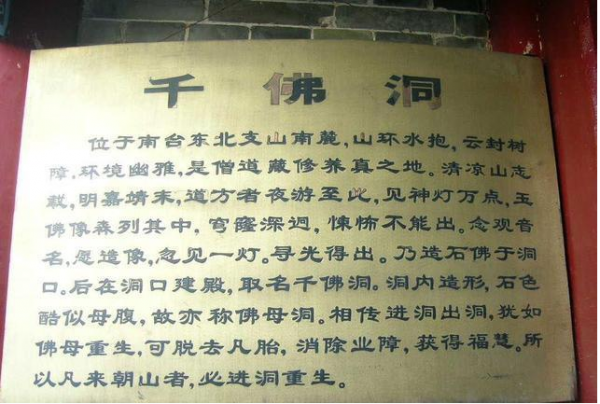 千佛洞
位于南台东北支山南麓，山环水抱，云封树
障，环境幽雅，是僧道藏修养真之地。清凉山志
载，明嘉靖末，道方者夜游至此，见神灯万点，玉
佛像森列其中，穹窿深迥，悚怖不能出。念观音
名，愿造像，忽见一灯。寻光得出。乃造石佛于洞
口。后在洞口建殿，取名千佛洞。洞内造形，石色
酷似母腹，故亦称佛母洞。相传进洞出洞，犹如
佛母重生，可脱去凡胎，消除业障，获得福慧。所
以凡来朝山者，必进洞重生。